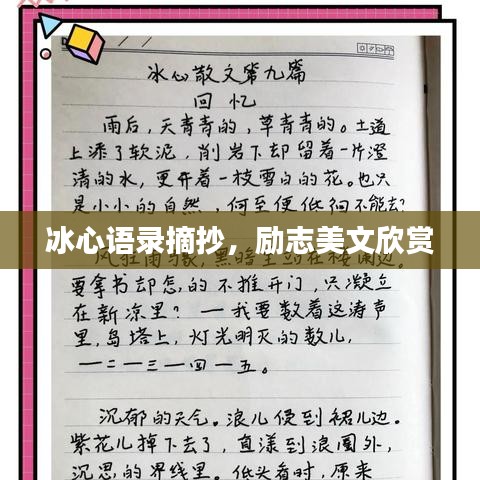 冰心散文第九篇
回忆
雨后，天青青的，草青青的。土道
上添了软泥，削岩下却留着一片澄
清的水，更开着一枝雪白的花。也只
是小小的自然，何至便低徊不能去？
冰心语录摘抄，励志美文欣赏
风狂雨
要拿书却怎的不推开门，只凝立
在新凉里？—我要数着这涛声
里，岛塔上，灯光明灭的数儿，
一—二—三—四—五。
沉郁的天气。浪儿侵到裙儿边。
紫花儿掉下去了，直漾到浪圈外，
沉思的界线里。低头看时，原来